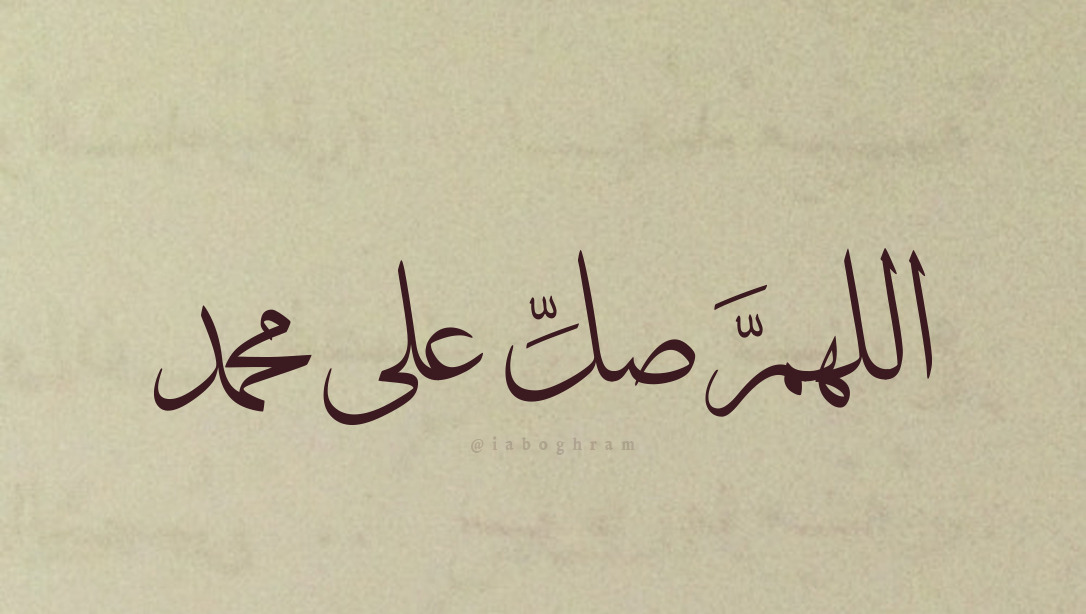 اللهمَّ صلِّ على محمد
@iaboghram